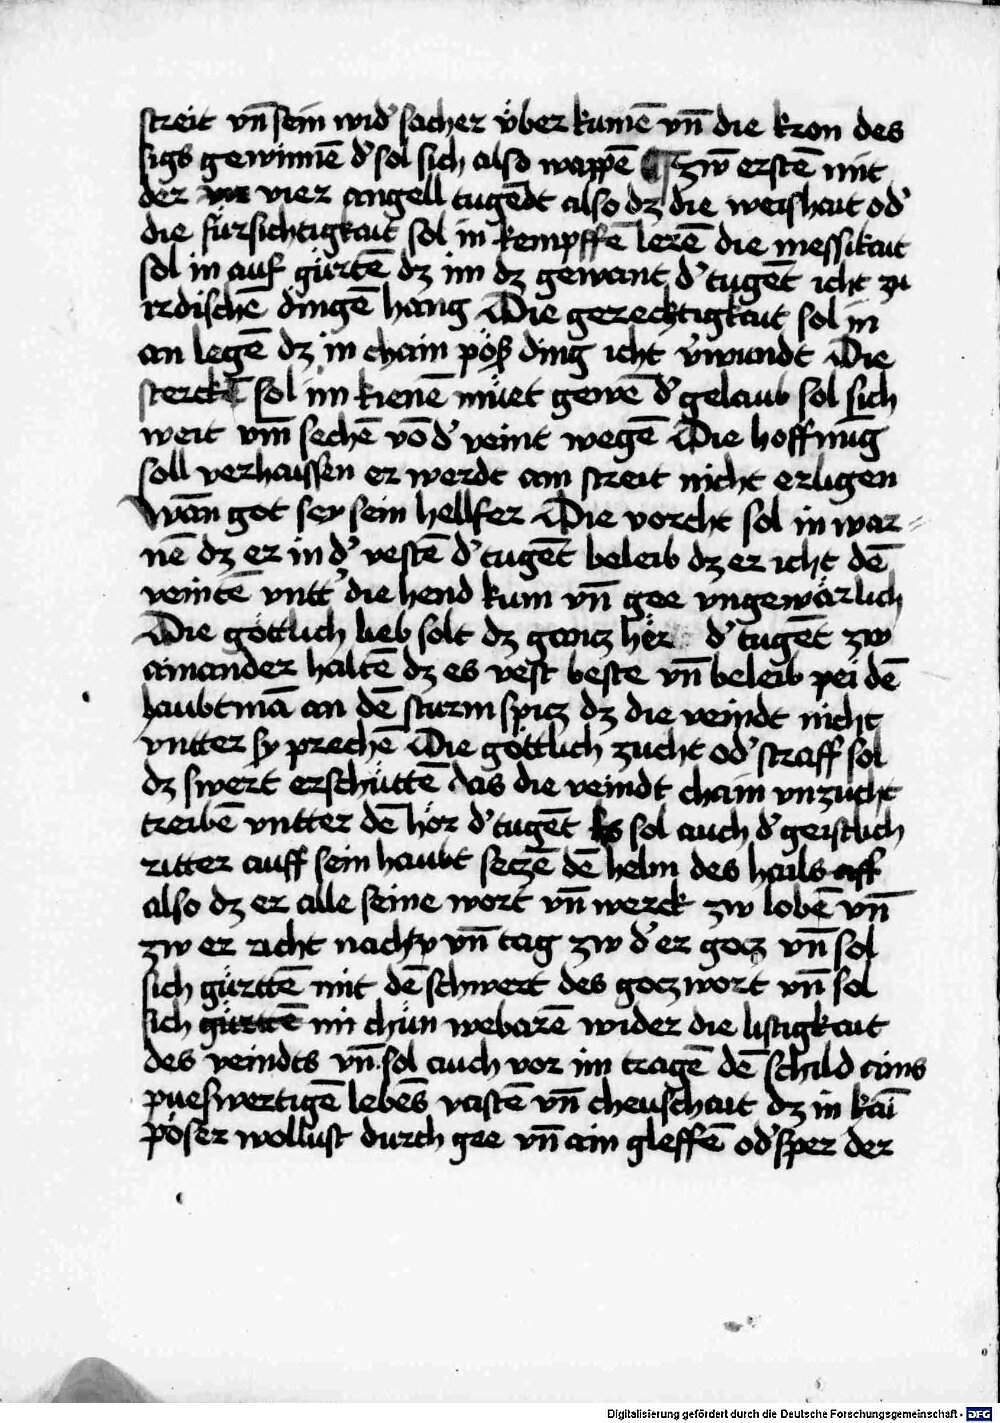 streit vn̄ sein wid' sacher v̈ber kumē vn̄ die kron des
sigs gewinnē d' sol sich also wappē ¶ zw̄ erstē mit
der vier angell tugēdt also dz die weishait od'
die fürsichtigkait sol in kempffē lerē die messikait
sol in auf gürtē dz im dz gewant d' tugēt icht zu
irdischē dingē hang Die gerechtigkait sol in
an legē dz in chain pöß ding icht v'wundt Die
sterckē sol im kienē müet gewē d' gelaub sol sich
weit vm̄ sechē vō d' veint wegē Die hoffnūg
soll verhaissen er werdt am streit nicht erligen
wān got sey sein hellfer Die vorcht sol in war=
nē dz er in d' vestē d' tugēt beleib dz er icht dē
veintē vntt' die hend kum vn̄ gee vngewärlich
Die götlich lieb solt dz gancz hër d' tugēt zw
ainander haltē dz es vest beste vn̄ beleib pei dē
haubtmā an dē sturm spicz dz die veindt nicht
vntter sy prechē Die göttlich zucht od' straff sol
dz swert erschüttē das die veindt chain vnzucht
treibē vntter dē hör d' tugēt Es sol auch d' geistlich
ritter auff sein haubt seczē dē helm des hails aff
also dz er alle seine wort vn̄ werck zw lobē vn̄
zw er richt nacht vn̄ tag zw d' er gocz vn̄ sol
sich gürttē mit dē schwert des gocz wort vn̄ sol
sich gürttē im chün webarē wider die listigkait
des veindts vn̄ sol auch vor im tragē dē schild ains
pueswertigē lebēs vastē vn̄ cheuschait dz in kāi
pöser wollust durch gee vn̄ ain gleffē od' sper der
Digitalisierung gefördert durch die Deutsche Forschungsgemeinschaft - DFG